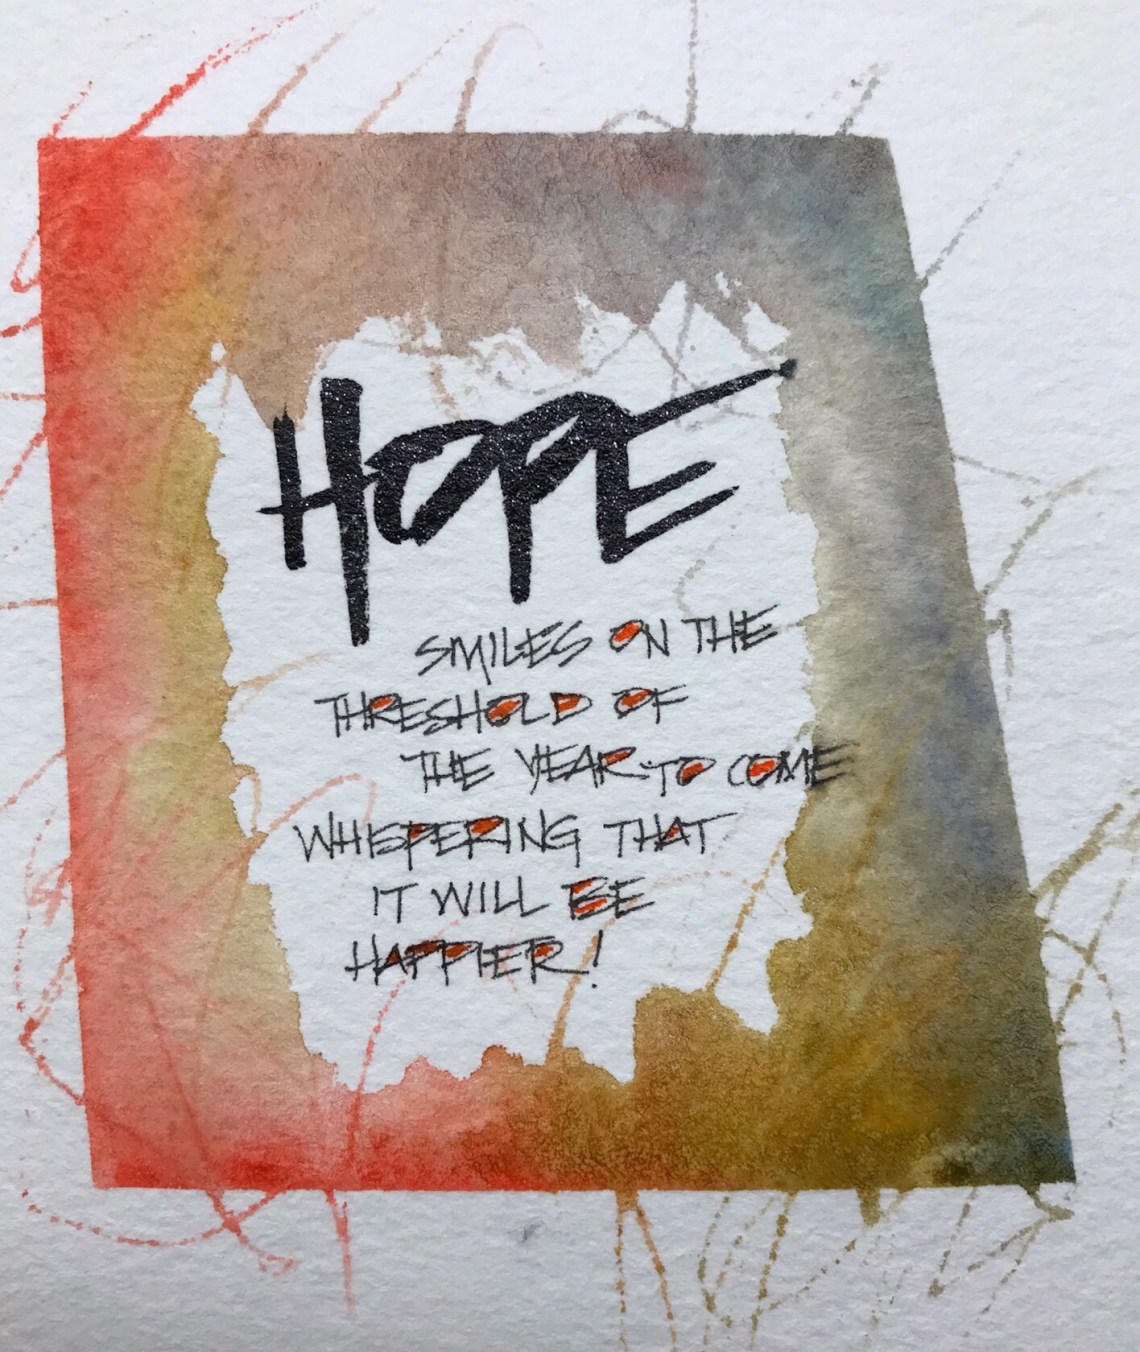 HOPE
SMILES ON THE
THRESHOLD OF
THE YEAR TO COME
WHISPERING THAT
IT WILL BE
HAPPIER!